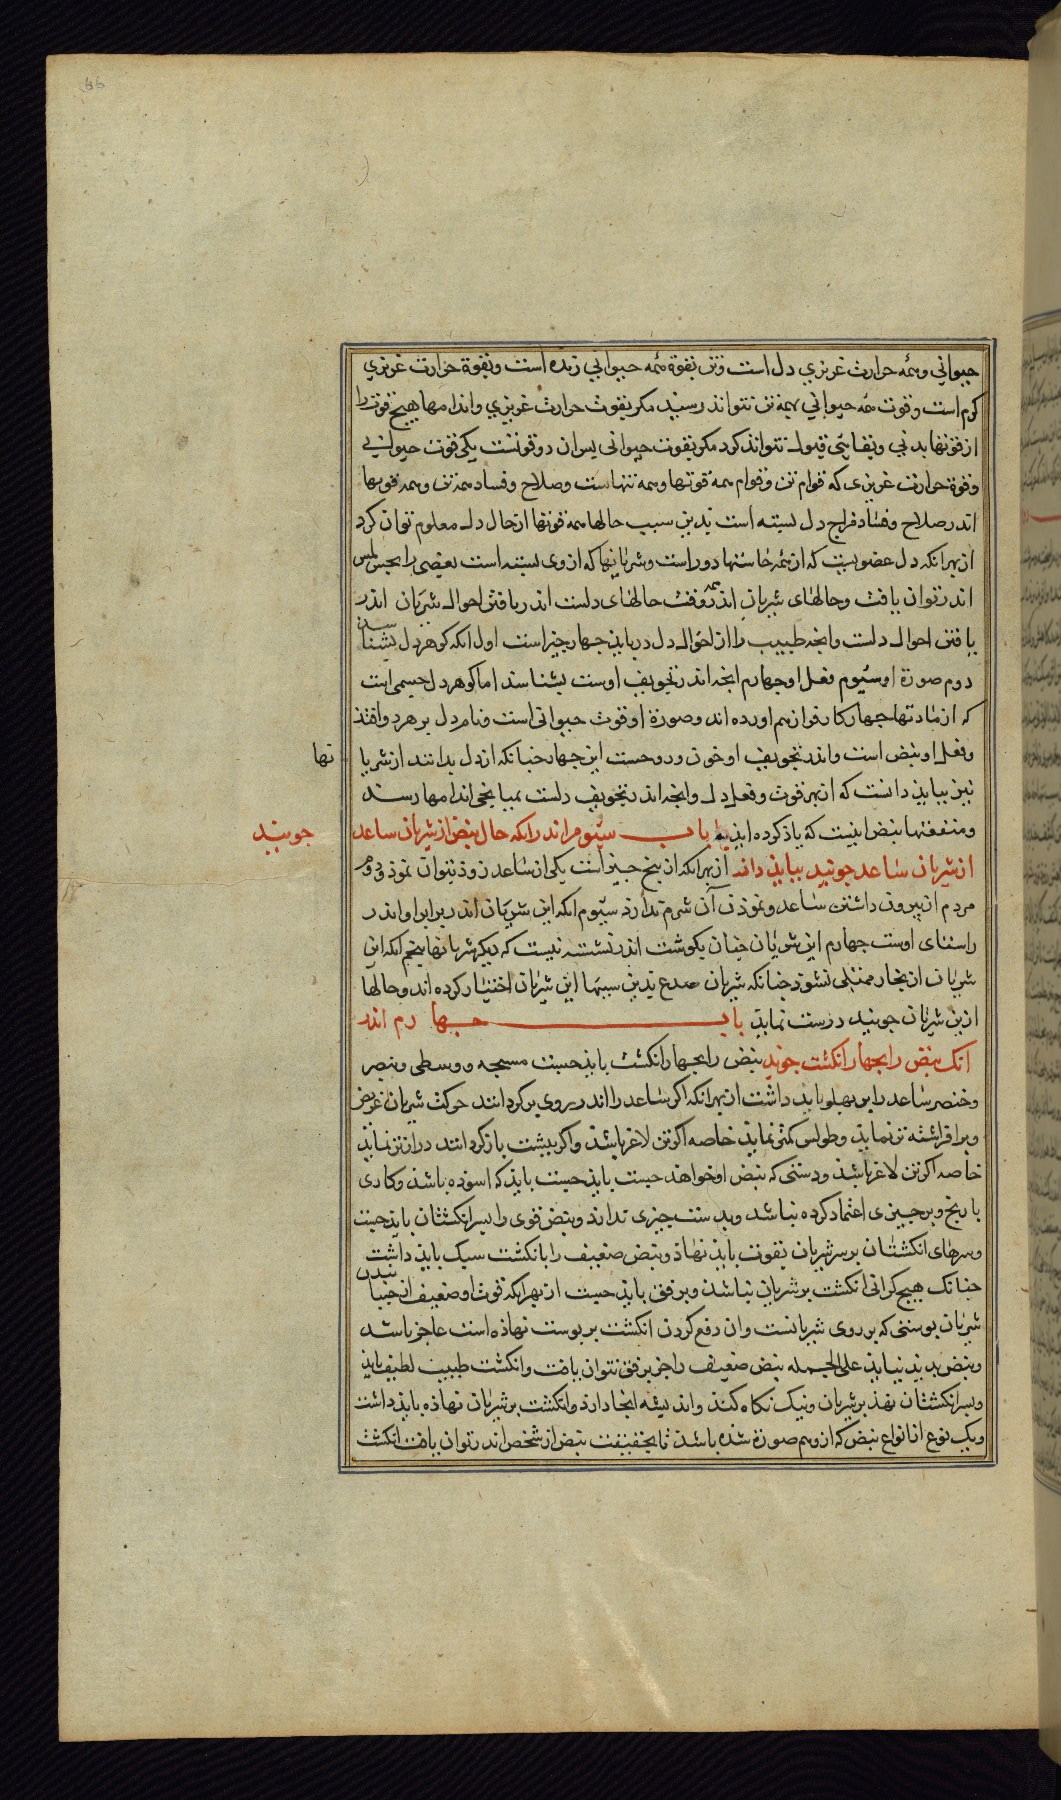 حیوانی و همه حرارت غریزی دل است و تن بقوة همه حیوانی زنده است و بقوة حرارت غریزی
کرم است و قوت همه حیوانی بهمه تن نتواند رسید مکر بقوت حرارت غریزی و اندامها هیچ قوت را
از قوتها بدنی و نفسانی قبول نتواند کرد مکر بقوت حیوانی بس ان دو قوتست یکی قوت حیوانی
و قوة حرارت غریزی که قوام تن و قوام همه قوتها و همه تنهاست و صلاح و فساد همه تن و همه قوتها
اندر صلاح و فساد مزاج دل بسته است بدین سبب حالها همه قوتها از حال دل معلوم توان کرد
از بهر انکه دل عضویست که از همه حاستها دور است و شریانها که از وی بسته است بعضی را بحس لمس
اندر توان یافت و حالهای شریان اندر همه وقت حالهای دلست اندر یافتن احوال شریان اندر
یافتن احوال دلست و انجه طبیب را از احوال دل دریابد جهار جیز است اول انکه کوهر دل بشناسد
دوم صورة او سیوم فعل او جهارم انجه اندر تجویف اوست بشناسد اما کوهر دل جسمی است
که از مادتها جهارکانه فراز هم اورده اند و صورة او قوت حیوانی است و نام دل بر هر دو افتد
و فعل او نبض است و اندر تجویف او خون و روحست این جهار جنانکه از دل بدانند از شریا
نها
نیز بباید دانست که از بهر قوت و فعل دل و انجه اندر تجویف دلست بمیانجی اندامها رسد
و منفعتها نبض اینست که یاذ کرده اید باب سیوم اندر انکه حال نبض از شریان ساعد
جویند
از شریان ساعد جویند بباید داند از بهر انکه از بنج جیز است یکی از ساعد زوذ بتوان نموذ دوم
مردم از بیرون داشتن ساعد و نموذن آن شرم ندارد سیوم انکه این شریان اندر برابر او اندر
راستای اوست جهارم این شریان جنان بکوشت اندر نشسته نیست که دیکر شریانها بنجم انکه این
شریان از بخار ممتلی نشود جنانکه شریان صدع بدین سببها این شریان اختیار کرده اند و حالها
ازین شریان جویند درست نماید باب جهارم اندر
انک نبض را بجهار انکشت جویند نبض را بجهار انکشت باید جست مسبحه و وسطی و بنصر
و خنصر ساعد را بر بهلو باید داشت از بهر انکه اکر ساعد را اندر روی بر کردانند حرکت شریان عریض
و بر افراشته تر نماید و طولس کمتر نماید خاصه اکر تن لاغر باشد و اکر ببشت باز کردانند درازتر نماید
خاصه اکر تن لاغر باشد و دستی که نبض او خواهند جست باید که اسوده باشد و کاری
با رنج و بر جیزی اعتماد کرده نباشد و بدست جیزی ندارد و نبض قوی را بسر انکشتان باید جست
و سرهای انکشتان بر سر شریان بقوت باید نهاد و نبض ضعیف را بانکشت سبک باید داشت
جنانک هیچ کرانی انکشت بر شریان نباشد و برفق باید جست از بهر انکه قوت او ضعیف از جنبانیدن
شریان بوستی که بر روی شریانست وان دفع کردن انکشت بر بوست نهاده است عاجز باشد
و نبض بدید نیاید علی الجمله نبض ضعیف را جز برفق نتوان یافت و انکشت طبیب لطیف باید
و بسر انکشتان نهد بر شریان و نیک نکاه کند و اندیشه انجا دارد و انکشت بر شریان نهاده باید داشت
و یک نوع از انواع نبض که از وهم صورة شده باشد تا بحقیقت نبض از شخص اندر توان یافت انکشت